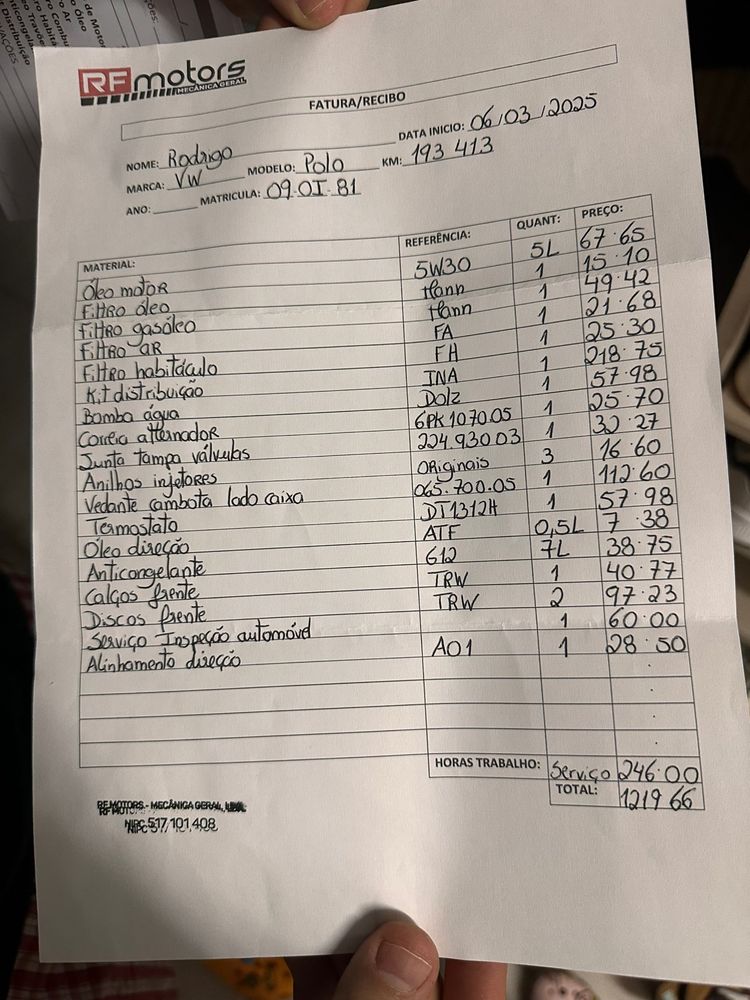 RFmotors
MECÂNICA GERAL
FATURA/RECIBO
NOME: Rodrigo DATA INICIO: 06/03/2025
MARCA: VW MODELO: Polo KM: 193 413
ANO: MATRICULA: 09.OI.81
MATERIAL: REFERÊNCIA: QUANT: PREÇO:
Óleo motor 5W30 5L 67.65
Filtro óleo Hann 1 15.10
Filtro gasóleo Hann 1 49.42
Filtro ar FA 1 21.68
Filtro habitáculo FH 1 25.30
Kit distribuição INA 1 218.75
Bomba água Dolz 1 57.98
Correia alternador 6PK1070.05 1 25.70
Junta tampa válvulas 224.930 03 1 32.27
Anilhos injetores ORiginais 3 16.60
Vedante cambota lado caixa 065.700.05 1 112.60
Termostato DT1312H 1 57.98
Óleo direção ATF 0,5L 7.38
Anticongelante G12 7L 38.75
Calços frente TRW 1 40.77
Discos frente TRW 2 97.23
Serviço Inspeção automóvel 1 60.00
Alinhamento direção A01 1 28.50
HORAS TRABALHO: Serviço 246.00
TOTAL: 1219 66
RF MOTORS - MECÂNICA GERAL,
NIPC 517 101 408